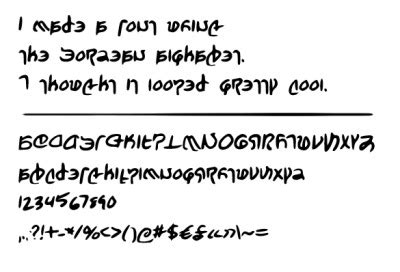 I made a font using
the Eorzean alphabet.
I thought it looked pretty cool.
ABCDEFGHIJKLMNOPQRSTUVWXYZ
abcdefghijklmnopqrstuvwxyz
1234567890
.,:?!+-*/%<>()@#$€£«»\~=